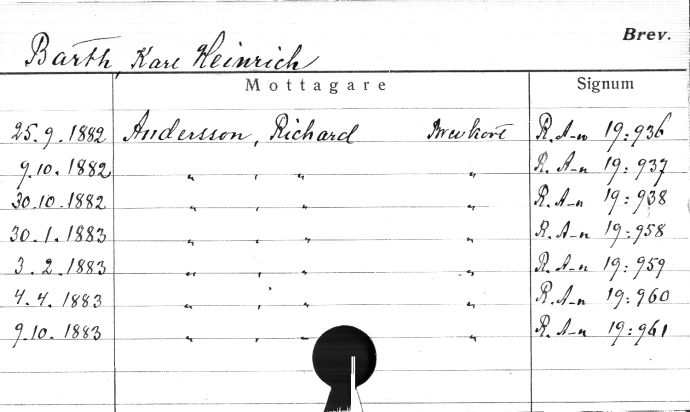 Brev.
Barth, Karl Heinrich
Mottagare Signum
25.9.1882 Andersson, Richard Brevkort R. A-n 19:936
9.10.1882 " , " " R. A-n 19:937
30.10.1882 " , " " R. A-n 19:938
30.1.1883 " , " " R. A-n 19:958
3.2.1883 " , " " R. A-n 19:959
4.4.1883 " , " " R. A-n 19:960
9.10.1883 " , " " R. A-n 19:961